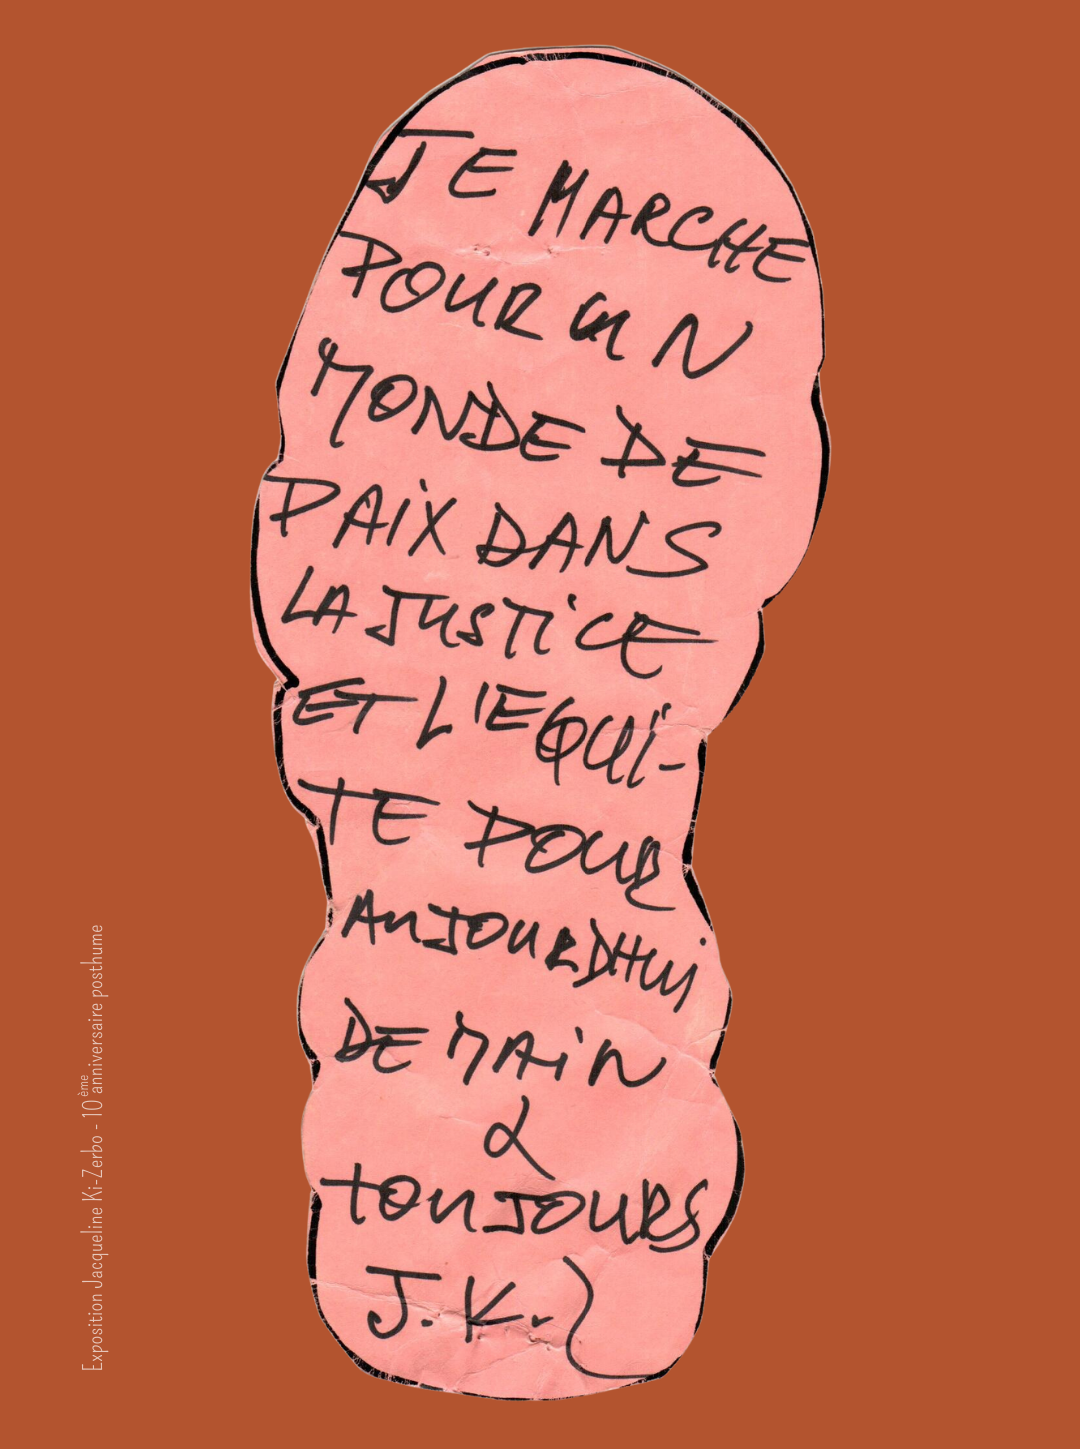 JE MARCHE
POUR UN
MONDE DE
PAIX DANS
LA JUSTICE
ET L'EQUI-
TE POUR
AUJOURDHUI
DEMAIN
&
TOUJOURS
J.K.Z
Exposition Jacqueline Ki-Zerbo - 10ème anniversaire posthume